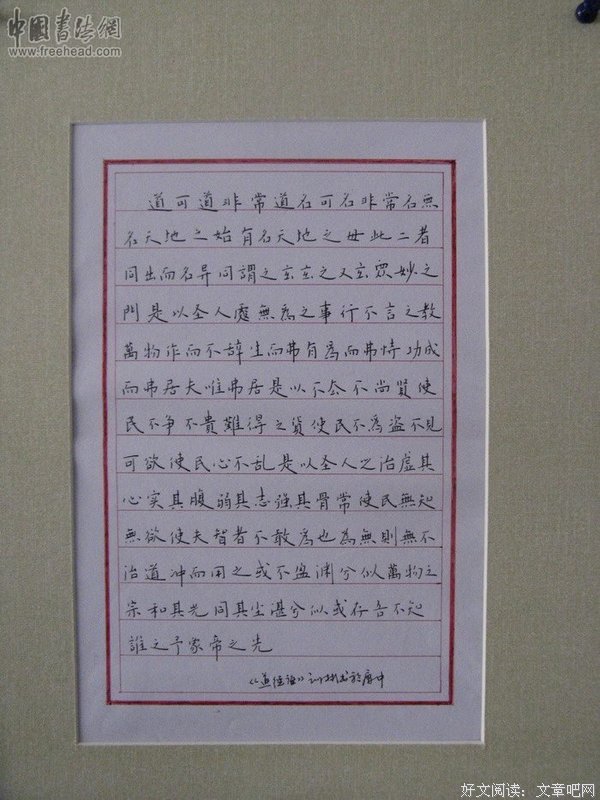 中國書法網
www.freehead.com
道可道非常道名可名非常名無
名天地之始有名天地之母此二者
同出而名异同謂之玄玄之又玄眾妙之
門是以圣人處無為之事行不言之教
萬物作而不辞生而弗有為而弗恃功成
而弗居夫唯弗居是以不去不尚賢使
民不争不貴難得之货使民不為盗不見
可欲使民心不乱是以圣人之治虚其
心实其腹弱其志强其骨常使民無知
無欲使夫智者不敢為也為無則無不
治道冲而用之或不盈渊兮似萬物之
宗和其光同其尘湛兮似或存吾不知
誰之子象帝之先
《道德經》
好文阅读：文章吧网